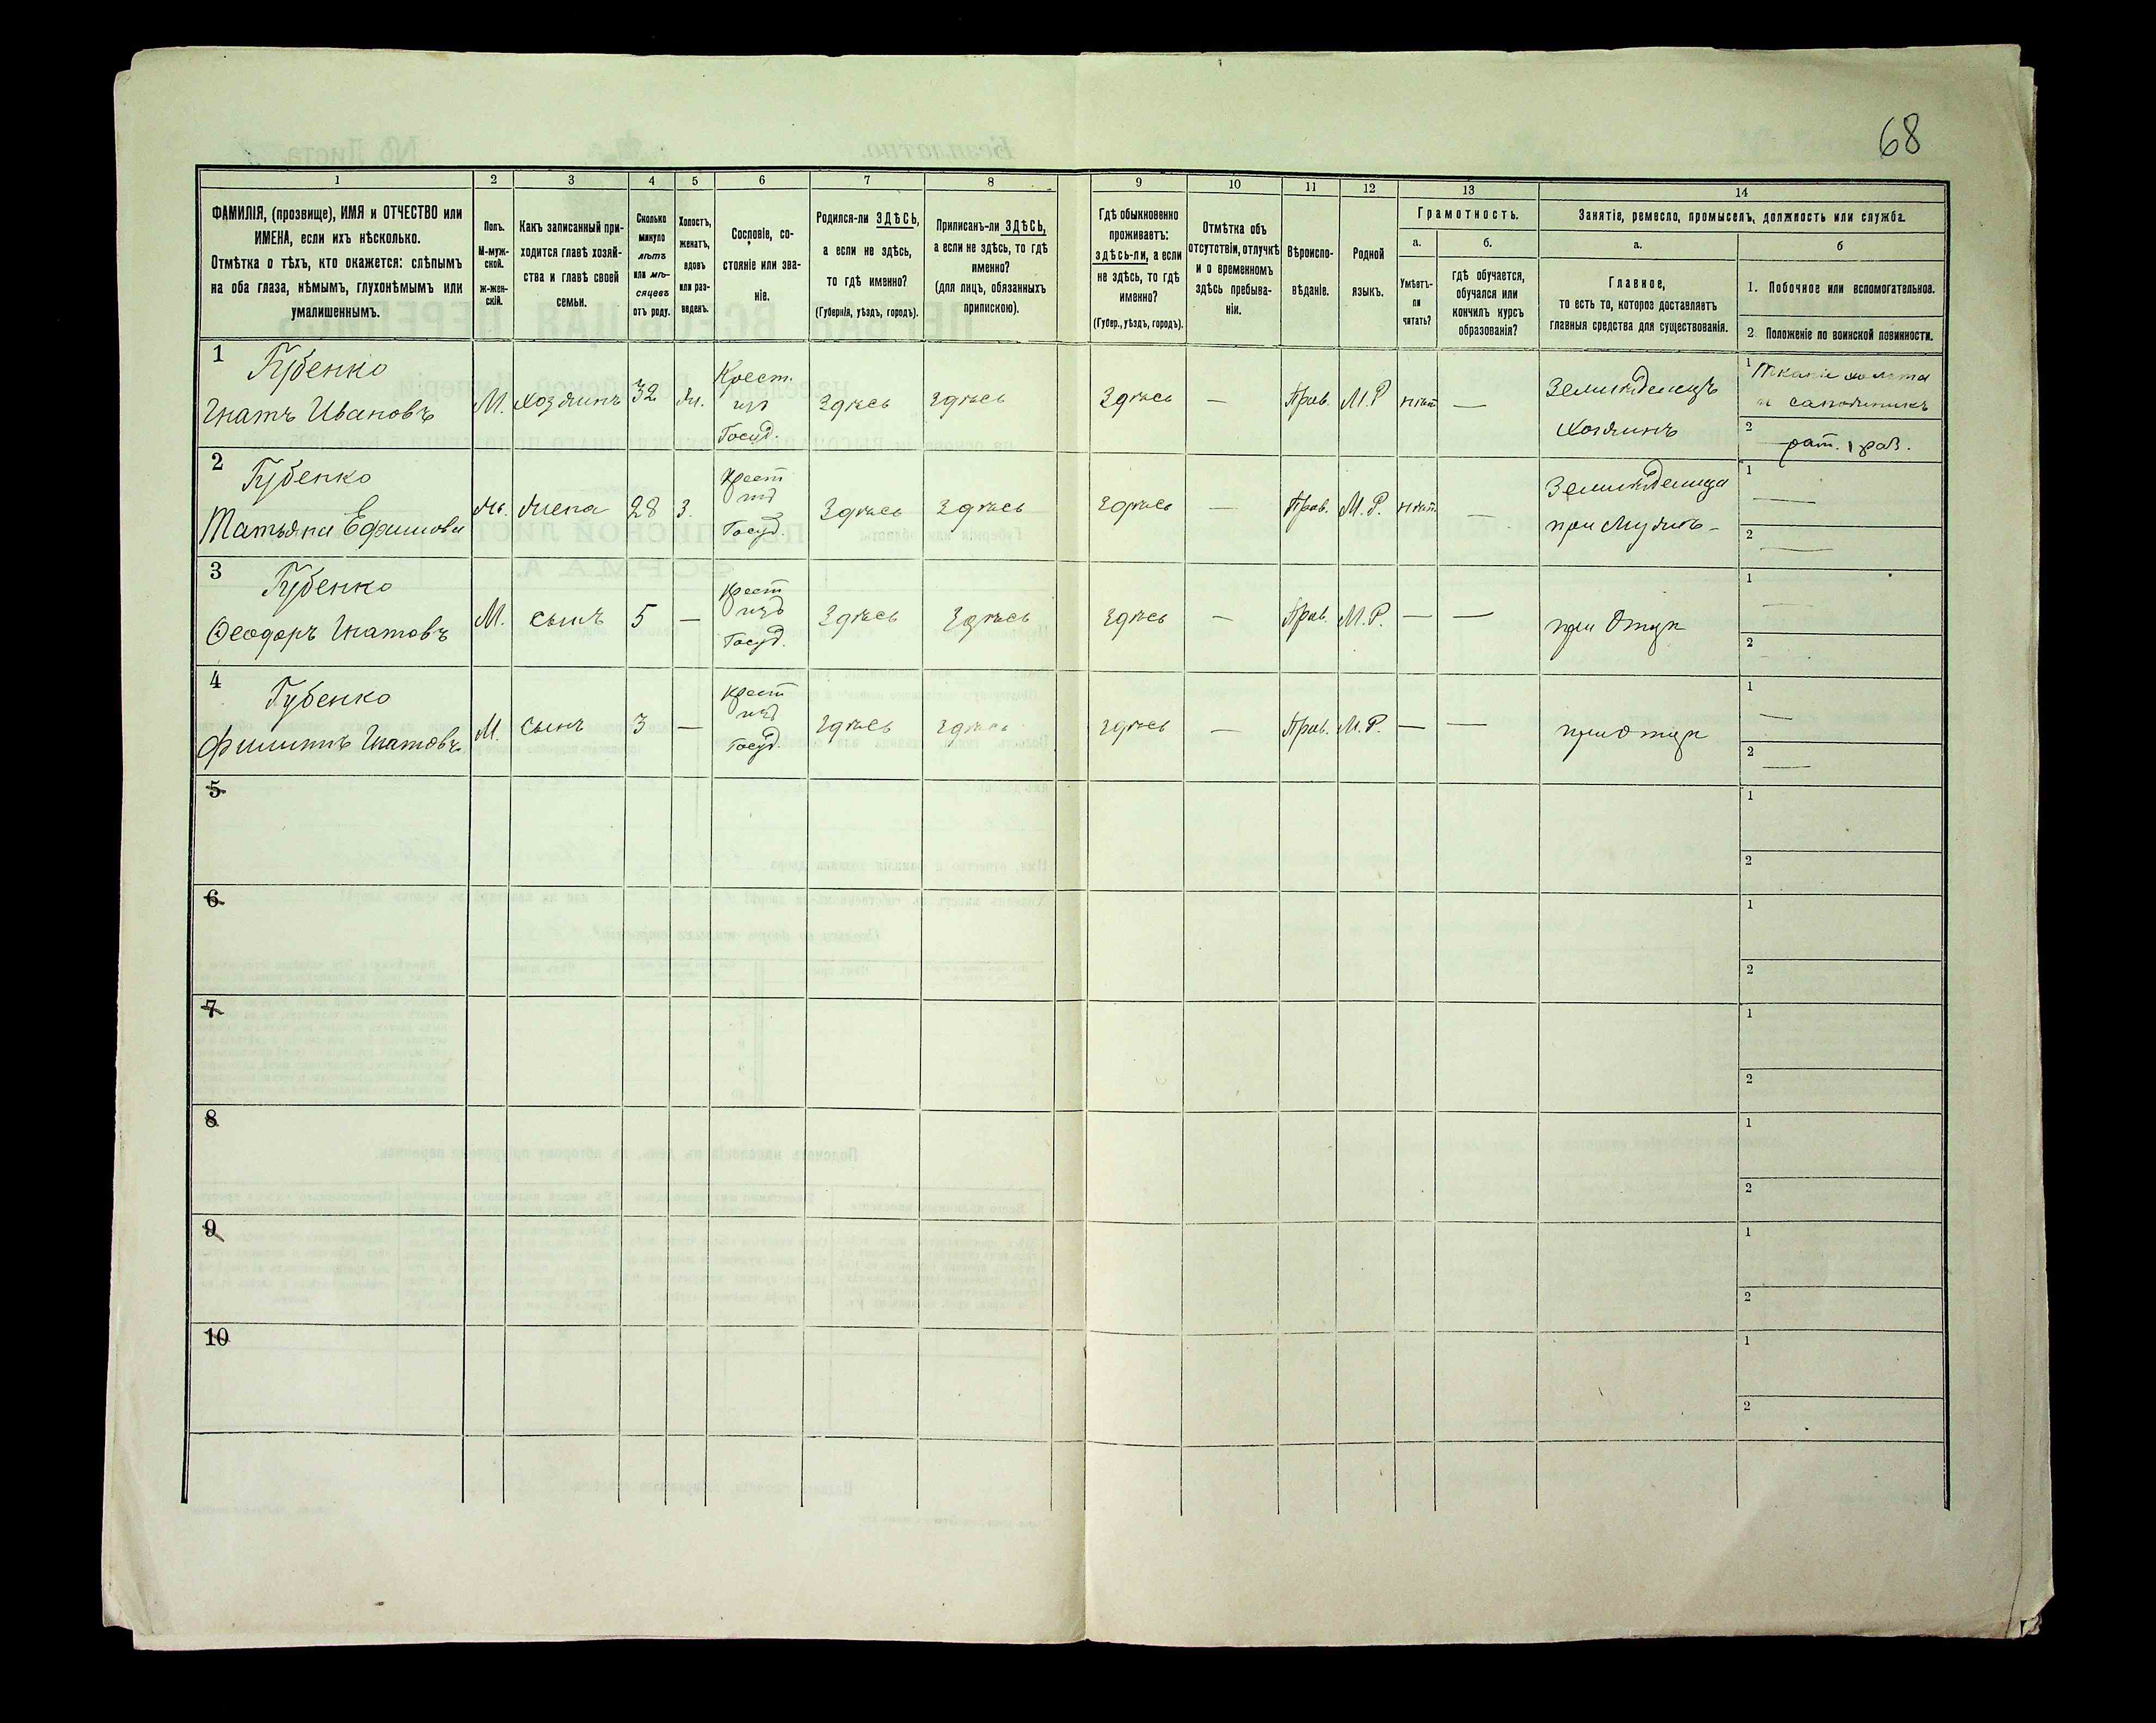 68
1
2
3
4
5
6
7
8
9
10
11
12
13
14
ФАМИЛІЯ, (прозвище), ИМЯ и ОТЧЕСТВО или
ИМЕНА, если ихъ нѣсколько.
Отмѣтка о тѣхъ, кто окажется: слѣпымъ
на оба глаза, нѣмымъ, глухонѣмымъ или
умалишеннымъ.
Полъ.
М-муж-
ской.
ж-жен-
скій.
Какъ записанный при-
ходится главѣ хозяй-
ства и главѣ своей
семьи.
Сколько
минуло
лѣтъ
или мѣ-
сяцевъ
отъ роду.
Холостъ,
женатъ,
вдовъ
или раз-
веденъ.
Сословіе, со-
стояніе или зва-
ніе.
Родился-ли ЗДѢСЬ,
а если не здѣсь,
то гдѣ именно?
(Губернія, уѣздъ, городъ).
Приписанъ-ли ЗДѢСЬ,
а если не здѣсь, то гдѣ
именно?
(для лицъ, обязанныхъ
припискою).
Гдѣ обыкновенно
проживаетъ:
здѣсь-ли, а если
не здѣсь, то гдѣ
именно?
(Губер., уѣздъ, городъ).
Отмѣтка объ
отсутствіи, отлучкѣ
и о временномъ
здѣсь пребыва-
ніи.
Вѣроиспо-
вѣданіе.
Родной
языкъ.
Грамотность.
а.
Умѣетъ-
ли
читать?
б.
гдѣ обучается,
обучался или
кончилъ курсъ
образованія?
Занятіе, ремесло, промыселъ, должность или служба.
а.
Главное,
то есть то, которое доставляетъ
главныя средства для существованія.
б
1. Побочное или вспомогательное.
2. Положеніе по воинской повинности.
1
Губенко
Игнатъ Ивановъ
М.
хозяинъ
32
ж.
Крест.
изъ
Госуд.
здѣсь
здѣсь
здѣсь
—
Прав.
М.Р
нѣт
—
Земледѣлецъ
хозяинъ
1 Тканіе холста
и сапожникъ
2
рат. 1 раз.
2
Губенко
Татьяна Ефимова
ж.
жена
28
з.
Крест
изъ
Госуд.
здѣсь
здѣсь
здѣсь
—
Прав.
М.Р.
нѣт
—
Земледѣлица
при мужѣ-
1
—
2
—
3
Губенко
Ѳеодоръ Игнатовъ
М.
сынъ
5
—
Крест
изъ
Госуд.
здѣсь
здѣсь
здѣсь
—
Прав.
М.Р.
—
—
при отцѣ
1
—
2
4
Губенко
Филиппъ Игнатовъ
М.
сынъ
3
—
Крест
изъ
Госуд.
здѣсь
здѣсь
здѣсь
—
Прав.
М.Р.
—
—
при отцѣ
1
—
2
—
5
1
2
6
1
2
7
1
2
8
1
2
9
1
2
10
1
2